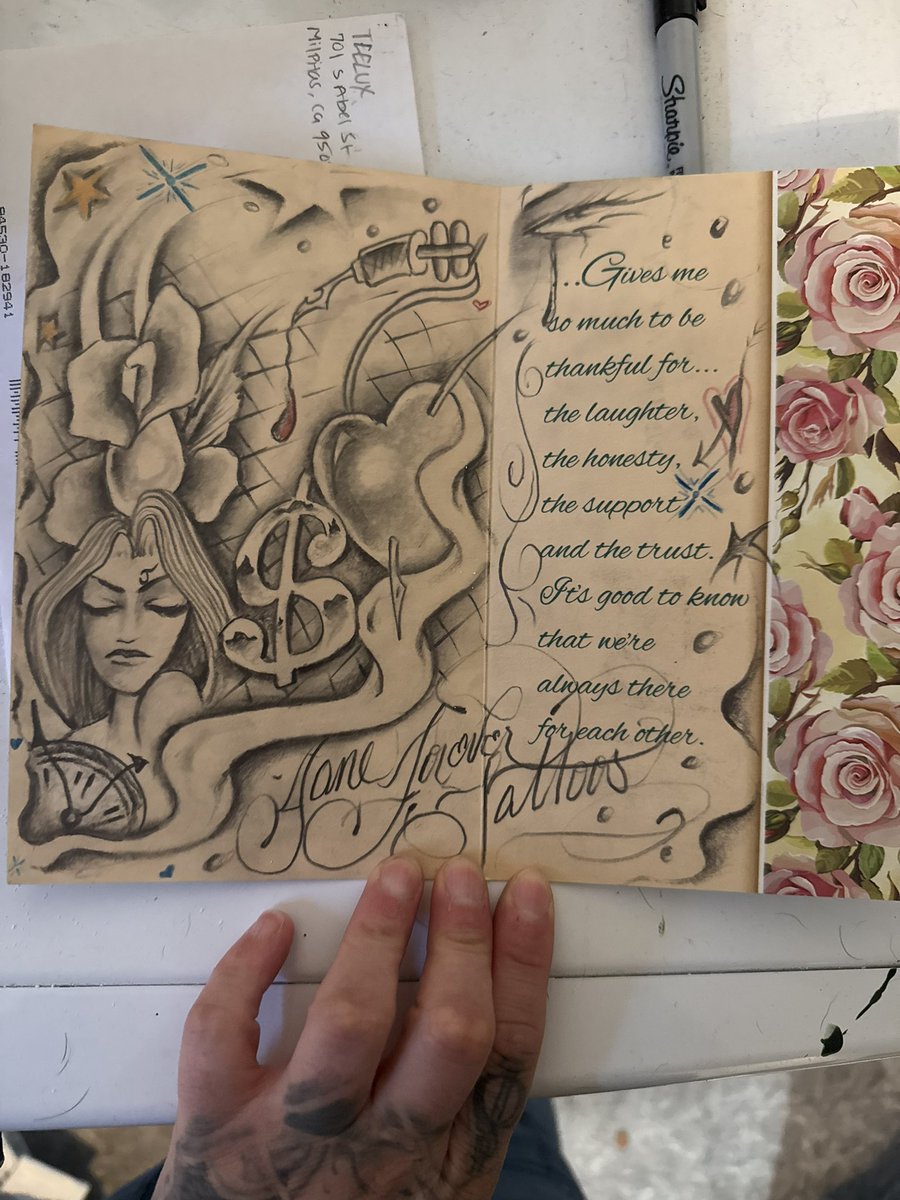 TEELUX
701 S Abel St
Milpitas, CA 950
Sharpie.
94530-182941
...Gives me
so much to be
thankful for...
the laughter,
the honesty,
the support
and the trust.
It's good to know
that we're
always there
for each other.
Forever